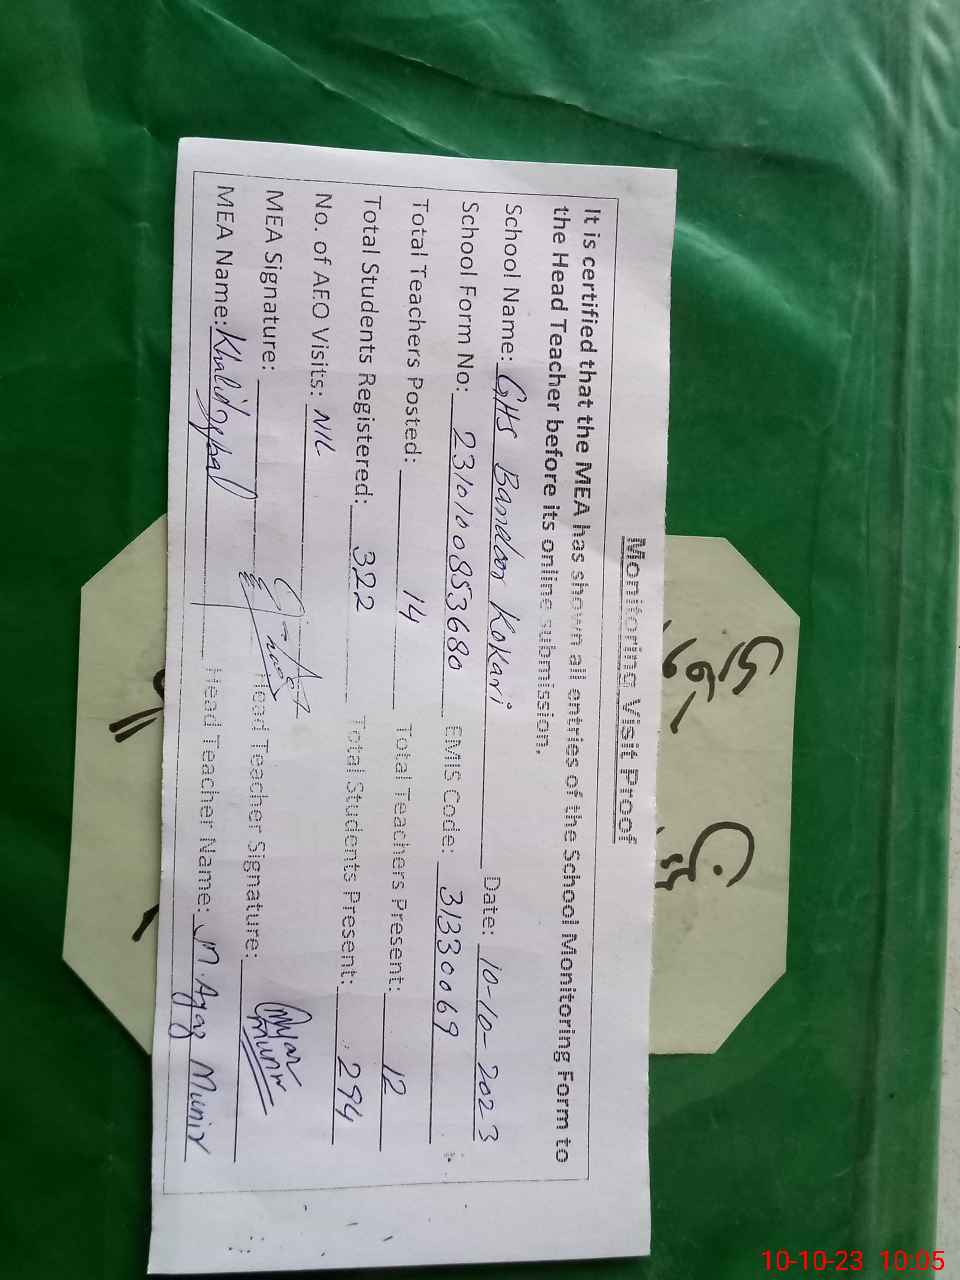 Monitoring Visit Proof
It is certified that the MEA has shown all entries of the School Monitoring Form to
the Head Teacher before its online submission.
School Name: GHS Bandoor Kokari Date: 10-10-2023
School Form No: 2310100853680 EMIS Code: 31330069
Total Teachers Posted: 14 Total Teachers Present: 12
Total Students Registered: 322 Total Students Present: 294
No. of AEO Visits: NIL
MEA Signature: Head Teacher Signature:
MEA Name: Khalid Iqbal Head Teacher Name: M. Ayaz Munir
10-10-23 10:05